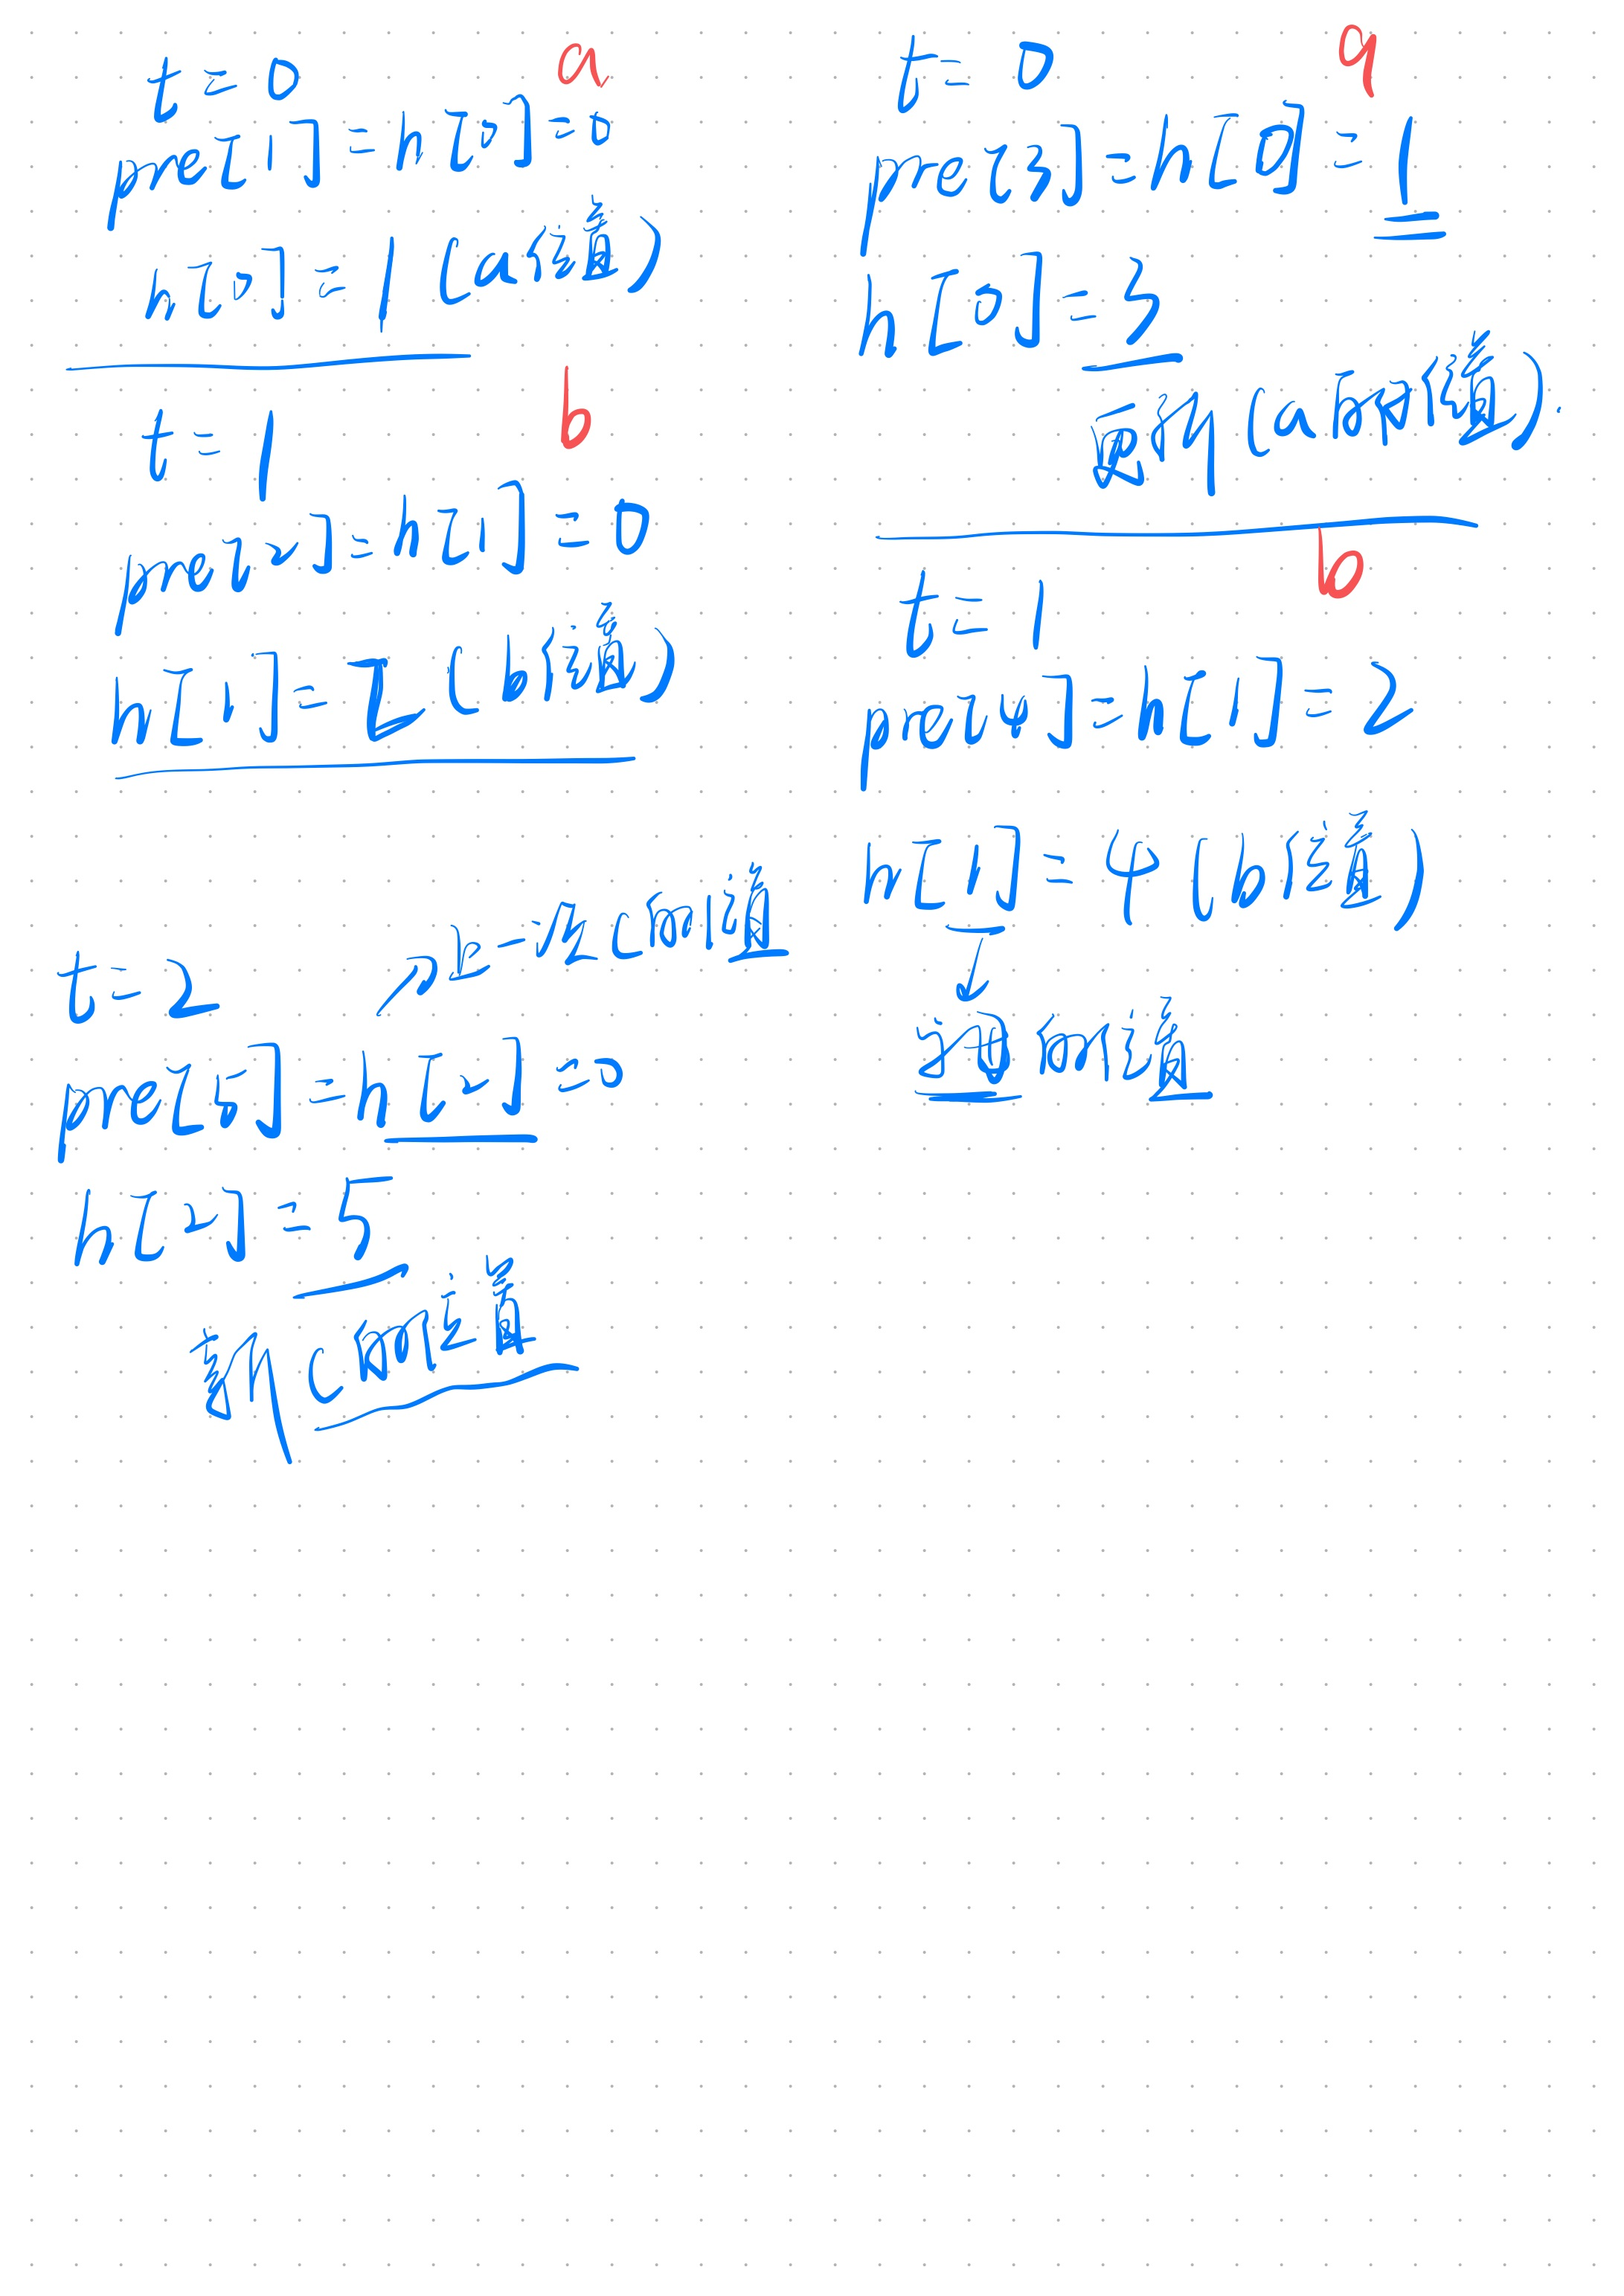 t=0 a
pre[1]=h[0]=0
h[0]=1 (a位置)
t=1 b
pre[2]=h[1]=0
h[1]=2 (b位置)
t=2 上一次c的位置
pre[5]=h[2]=0
h[2]=5
新c的位置
t=0 a
pre[3]=h[0]=1
h[0]=3
更新(a的位置).
t=1 b
pre[4]=h[1]=2
h[1]=4 (b位置)
的位置